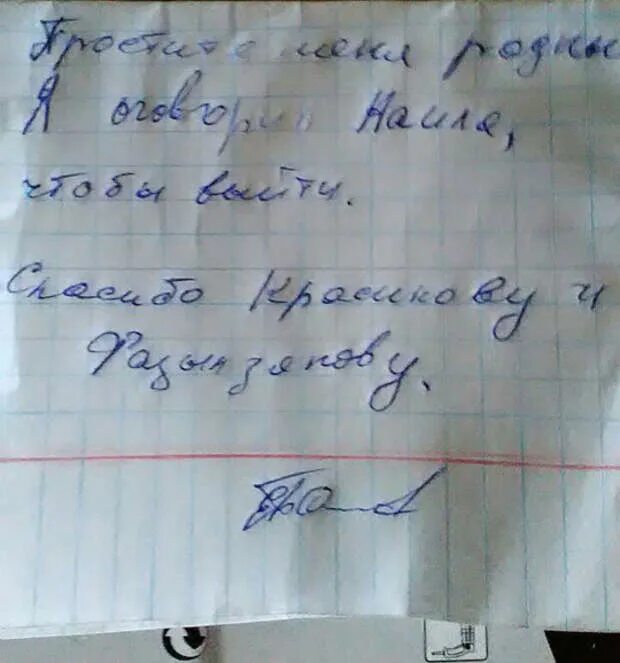 Простите меня родны
Я оговорил Наиля,
чтобы выйти.
Спасибо Красикову и